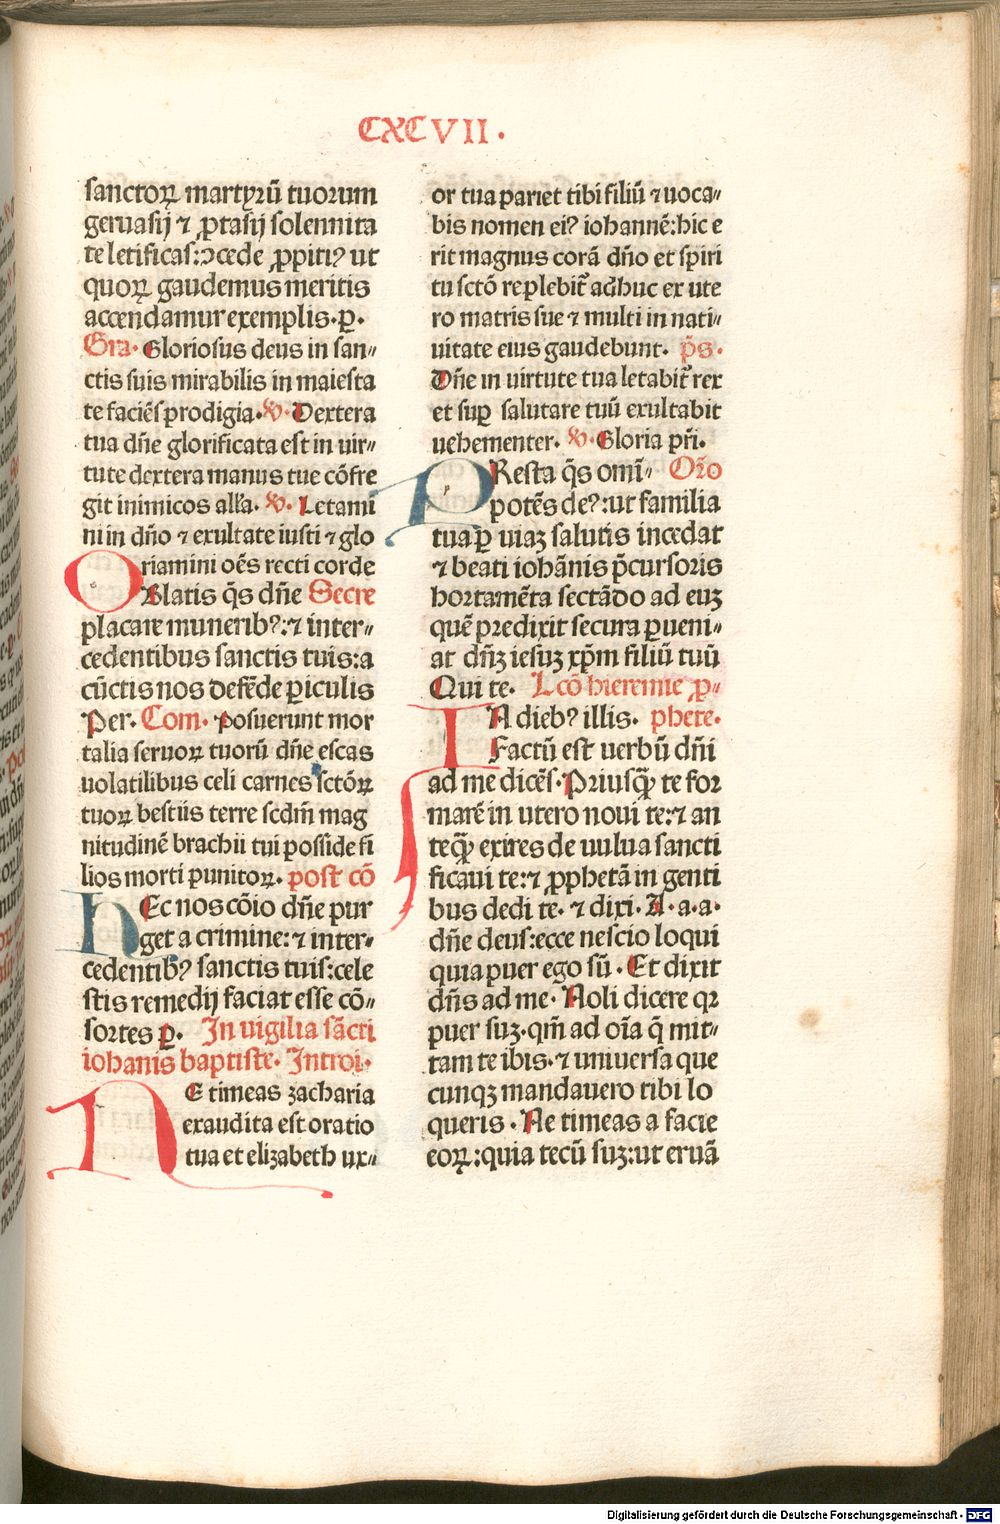 CXCVII.
sanctoꝝ martyrū tuorum
geruasij ⁊ ꝓtasij solennita
te letificas:ↄcede ꝓpitiꝰ ut
quoꝝ gaudemus meritis
accendamur exemplis.ꝑ.
Gra. Gloriosus deus in san⸗
ctis suis mirabilis in maiesta
te faciēs prodigia. ℣. Dextera
tua dñe glorificata est in uir⸗
tute dextera manus tue cōfre
git inimicos alľa. ℣. Letami
ni in dño ⁊ exultate iusti ⁊ glo
riamini oēs recti corde
OBlatis q̄s dñe Secre
placare muneribꝰ:⁊ inter⸗
cedentibus sanctis tuis:a
cūctis nos defēde ꝑiculis
Per. Com. Posuerunt mor
talia seruoꝝ tuorū dñe escas
uolatilibus celi carnes sctōꝝ
tuoꝝ bestiis terre scdm̄ mag
nitudinē brachii tui posside fi
lios morti punitoꝝ. post cō
HEc nos cōio dñe pur
get a crimine:⁊ inter⸗
cedentibꝰ sanctis tuis:cele
stis remedij faciat esse cō⸗
sortes ꝑ. In uigilia sācti
iohanis baptiste. Introi.
NE timeas zacharia
exaudita est oratio
tua et elizabeth ux⸗
or tua pariet tibi filiū ⁊ uoca⸗
bis nomen eiꝰ iohannē:hic e
rit magnus corā dño et spiri
tu sctō replebit᷑ adhuc ex ute
ro matris sue ⁊ multi in nati⸗
uitate eius gaudebunt. p̄s.
Dñe in uirtute tua letabit᷑ rex
et suꝑ salutare tuū exultabit
uehementer. ℣. Gloria pr̄i.
PResta q̄s omī⸗ Orō
potēs deꝰ:ut familia
tua ꝑ uiaꝫ salutis incedat
⁊ beati iohānis p̄cursoris
hortamēta sectādo ad euꝫ
quē predixit secura ꝑueni⸗
at dñꝫ iesuꝫ xp̄m filiū tuū
Qui te. Lcō hieremie ꝓ⸗
IN diebꝰ illis. phete.
Factū est uerbū dñi
ad me dicēs. Priusꝙ̄ te for
marē in utero noui te:⁊ an
teꝙ̄ exires de uulua sancti
ficaui te:⁊ ꝓphetā in genti
bus dedi te. ⁊ dixi. A. a. a.
dñe deus:ecce nescio loqui
quia puer ego sū. Et dixit
dñs ad me. Noli dicere qꝛ
puer suꝫ.qm̄ ad oīa q̄ mit⸗
tam te ibis.⁊ uniuersa que
cunqꝫ mandauero tibi lo
queris. Ne timeas a facie
eoꝝ:quia tecū suꝫ:ut eruā
Digitalisierung gefördert durch die Deutsche Forschungsgemeinschaft - DFG